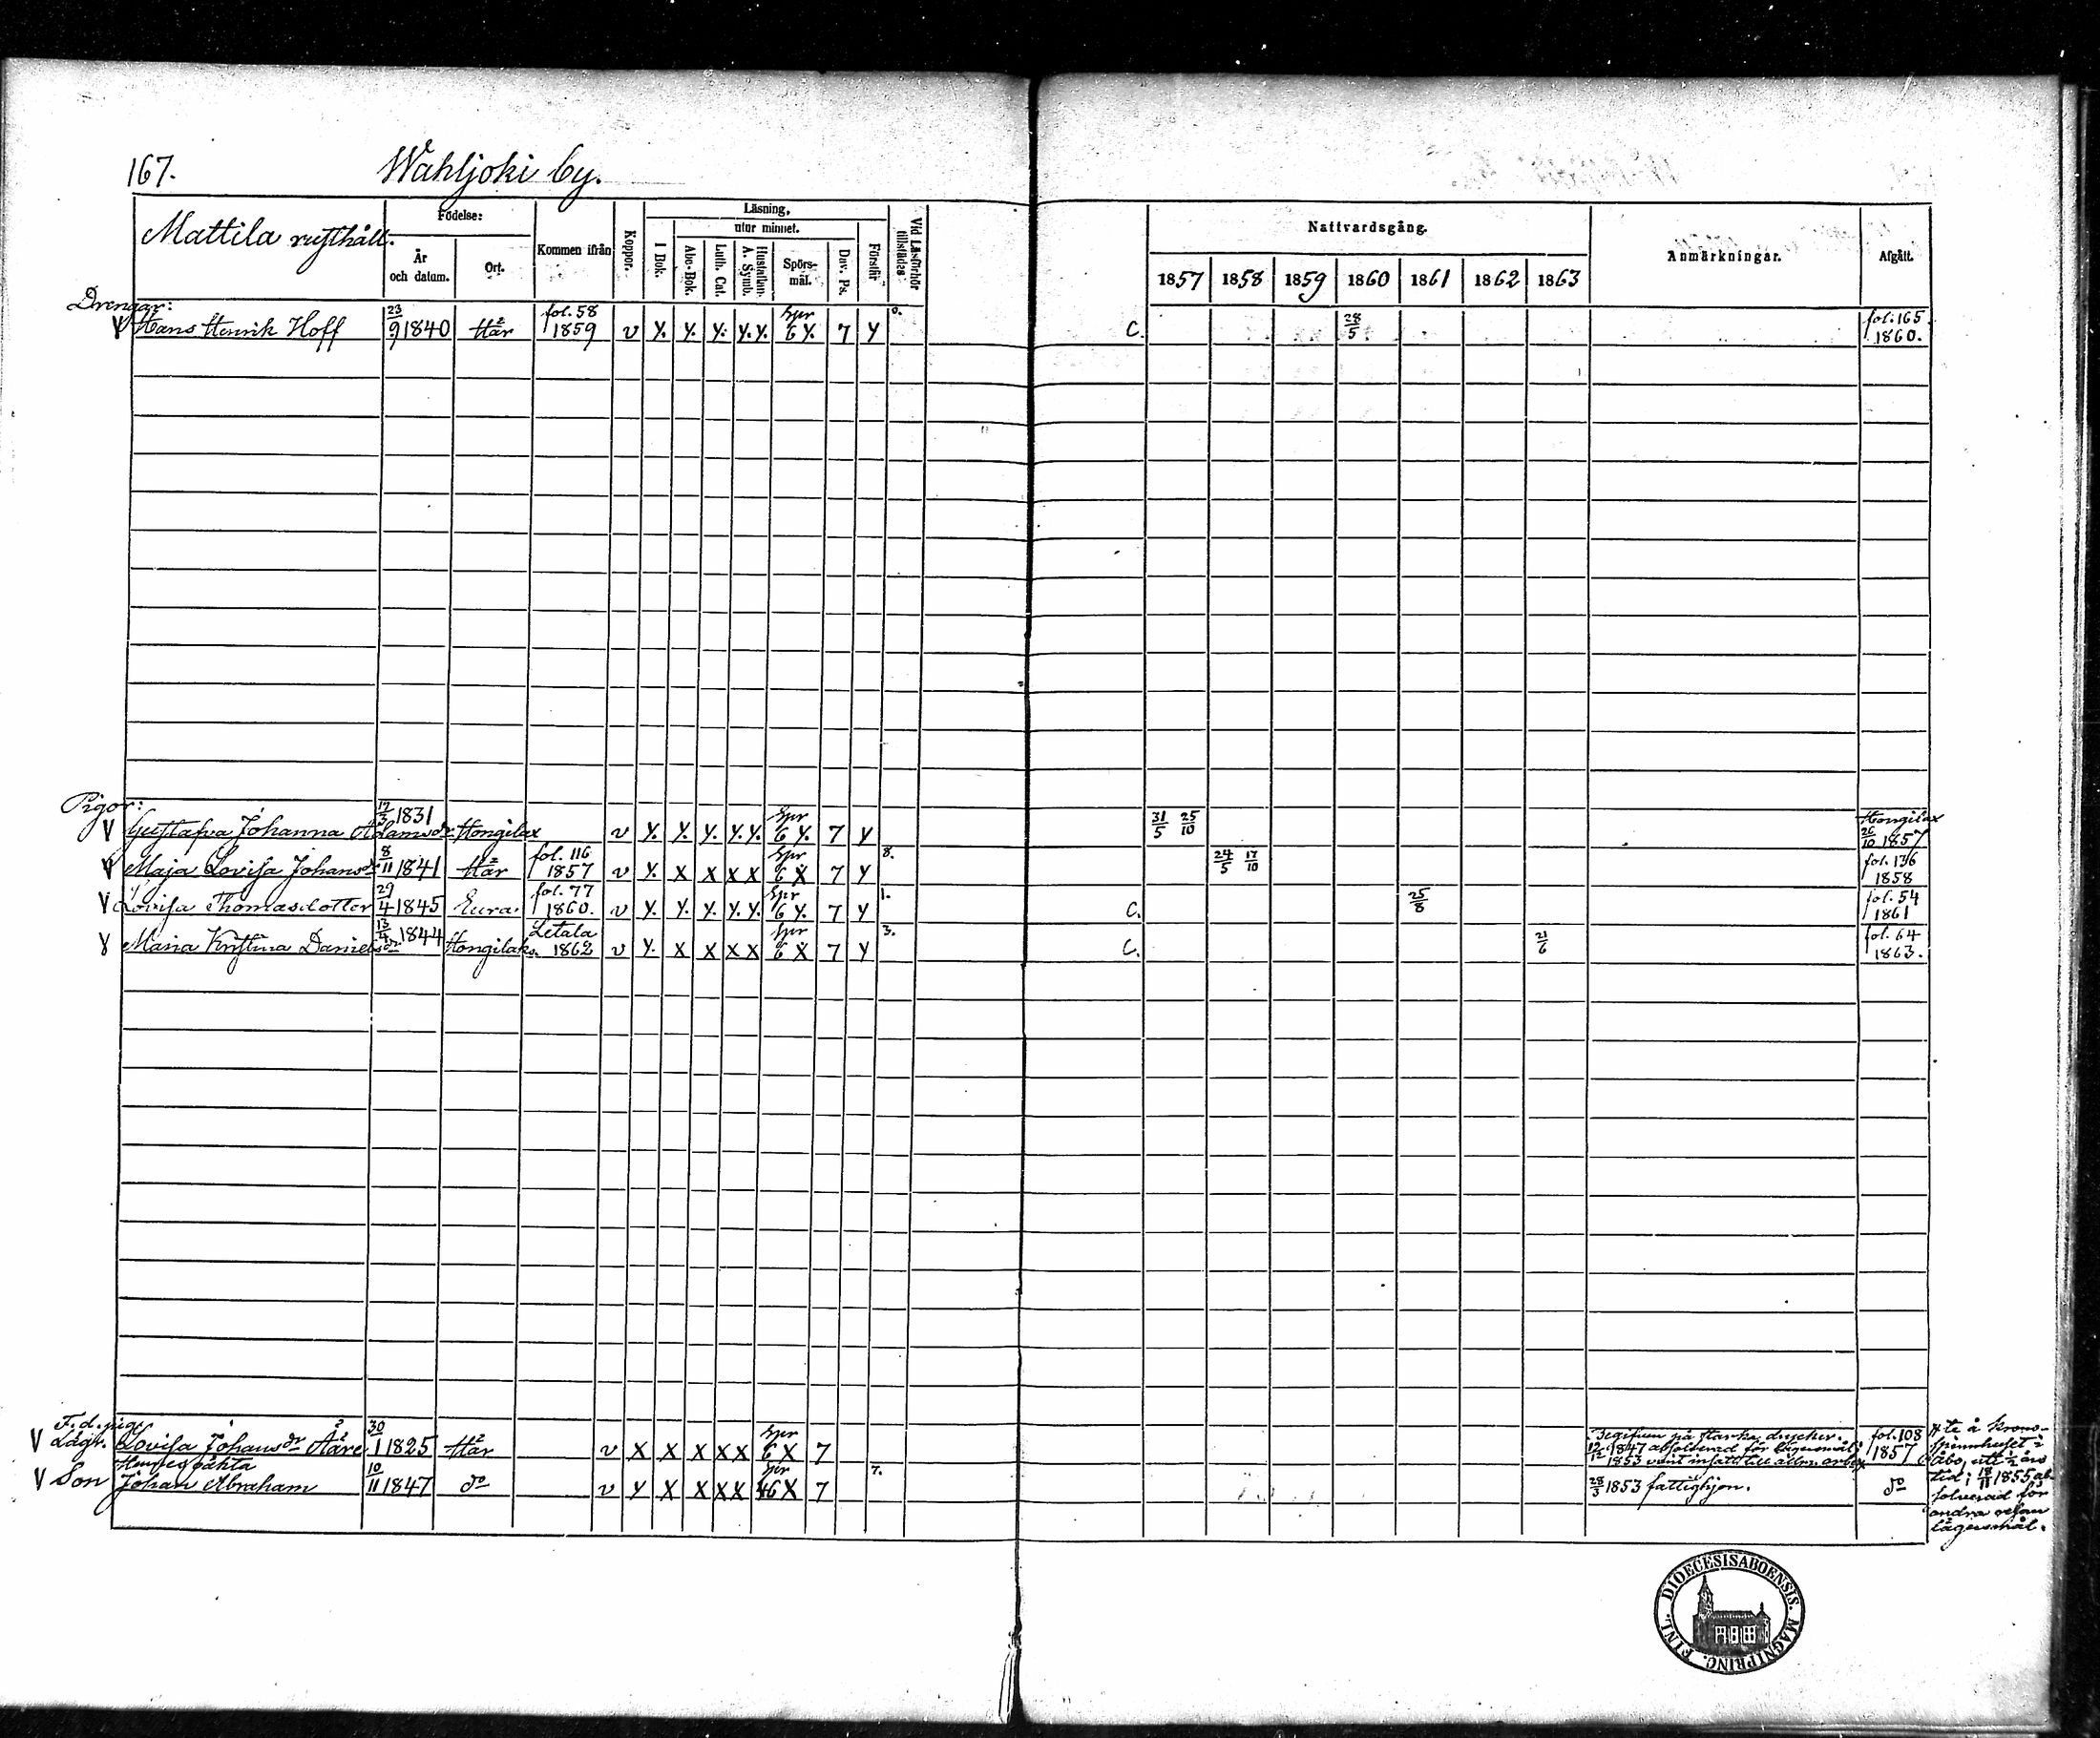 167. Wahljoki by.
Mattila rusthåll.
Födelse:
År och datum.
Ort.
Kommen ifrån
Koppor.
Läsning,
I Bok.
utur minnet.
Abc-Bok.
Luth. Cat.
Hustaflan. A. Symb.
Spörsmål.
Dav. Ps.
Förstår
Vid Läsförhör tillstädes
Nattvardsgång.
1857 1858 1859 1860 1861 1862 1863
Anmärkningar.
Afgått.
Drengar:
V Hans Henrik Hoff 23/9 1840 Här fol. 58 1859 v Y. Y. Y. Y. Y. Spr 6 Y. 7 Y 0. C. 28/5 fol. 165 1860.
Pigor:
V Gustafva Johanna Adamsdr 17/3 1831 Hongilax v Y. Y. Y. Y. Y. Spr 6 Y. 7 Y 31/5 25/10 Hongilax 26/10 1857
V Maja Lovisa Johansdr 8/11 1841 Här fol. 116 1857 v Y. X X X X Spr 6 X 7 Y 8. 24/5 17/10 fol. 136 1858
V Lovisa Thomasdotter 29/4 1845 Eura. fol. 77 1860. v Y. Y. Y. Y. Y. Spr 6 Y. 7 Y 1. C. 25/8 fol. 54 1861
V Maria Kristina Danielsdr 13/4 1844 Hongilaks. Letala 1862 v Y. X X X X Spr 6 X 7 Y 3. C. 21/6 fol. 64 1863.
F. d. piga
V Lägr. Lovisa Johansdr 30/1 1825 Här v X X X X X Spr 6 X 7 fol. 108 1857
Begifven på starka drycker.
12/12 1847 absolverad för lägersmål;
1853 varit insatt till allm. arbe-
te å krono-
spinnhuset i
Åbo, ett ½ års
tid; 18/11 1855 ab-
solverad för
andra resan
lägersmål.
V Son Johan Abraham 10/11 1847 do v Y X X X X Spr 6 X 7 7. 28/5 1853 fattighjon. do
DIOECESIS ABOENSIS. MAGNI PRINC. FINL.